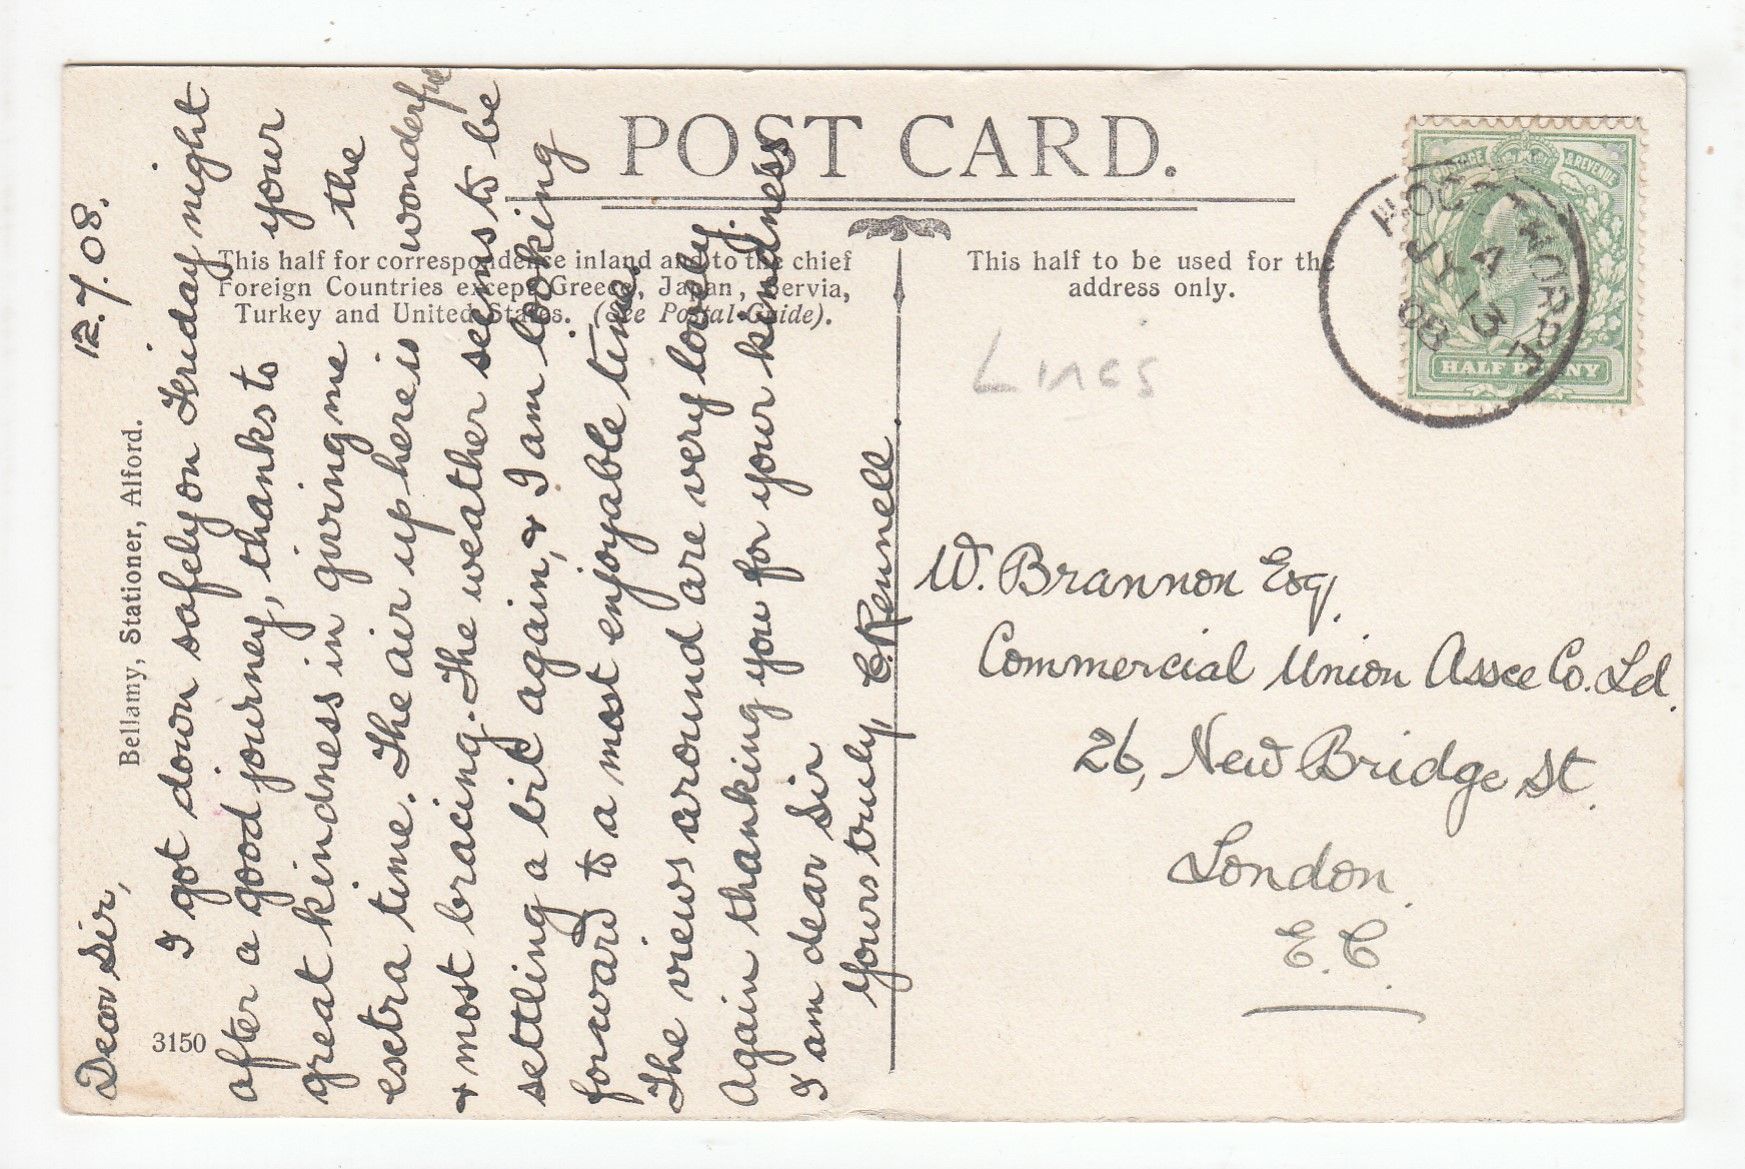 POST CARD.
This half for correspondence inland and to the chief
Foreign Countries except Greece, Japan, Servia,
Turkey and United States. (See Postal Guide).
This half to be used for the
address only.
Bellamy, Stationer, Alford.
3150
12.7.08.
Dear Sir,
I got down safely on Friday night
after a good journey, thanks to your
great kindness in giving me the
extra time. The air up here is wonderful
& most bracing. The weather seems to be
settling a bit again, & I am looking
forward to a most enjoyable time.
The views around are very lovely.
Again thanking you for your kindness
I am dear Sir
Yours truly, C. Rennell.
Lincs
W. Brannon Esq.
Commercial Union Assce Co. Ld.
26, New Bridge St.
London.
E.C.
POSTAGE & REVENUE
HALF PENNY
A
JY 13
08